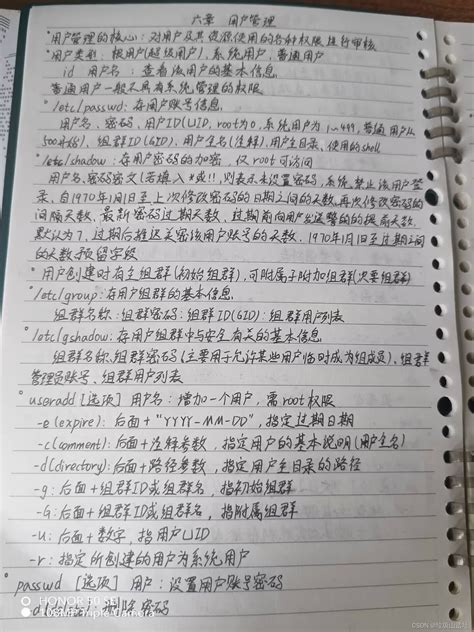 六章 用户管理
·用户管理的核心:对用户及其资源使用的各种权限进行审核
·用户类别:根用户(超级用户),系统用户,普通用户
id 用户名:查看该用户的基本信息
普通用户一般不具有系统管理的权限
·/etc/passwd:存用户账号信息
用户名、密码、用户ID(UID,root为0,系统用户为1~499,普通用户从
500开始),组群ID(GID),用户全名(注释),用户主目录、使用的shell
·/etc/shadow:存用户密码的加密,仅root可访问
用户名,密码密文(若填入*或!!,则表示未设置密码,系统禁止该用户登
录,自1970年1月1日至上次修改密码的日期之间的天数,再次修改密码的
间隔天数、最新密码过期天数、过期前向用户发送警告的提前天数,
默认为7、过期后推迟关密该用户账号的天数、1970年1月1日至过期之间
的天数,预留字段
·用户创建时有主组群(初始组群),可附属于附加组群(次要组群)
·/etc/group:存用户组群的基本信息
组群名称:组群密码:组群ID(GID):组群用户列表
·/etc/gshadow:存用户组群中与安全有关的基本信息
组群名称,组群密码(主要用于允许某些用户临时成为组成员),组群
管理员账号、组群用户列表
·useradd [选项] 用户名:增加一个用户,需root权限
-e(expire):后面+"YYYY-MM-DD",指定过期日期
-c(comment):后面+注释参数,指定用户的基本说明(用户全名)
-d(directory):后面+路径参数,指定用户主目录的路径
-g:后面+组群ID或组群名,指初始组群
-G:后面+组群ID或组群名,指附属组群
-u:后面+数字,指用户UID
-r:指定所创建的用户为系统用户
·passwd [选项] 用户:设置用户账号密码
-d 删除密码
HONOR 50 SE
108MP Triple Camera